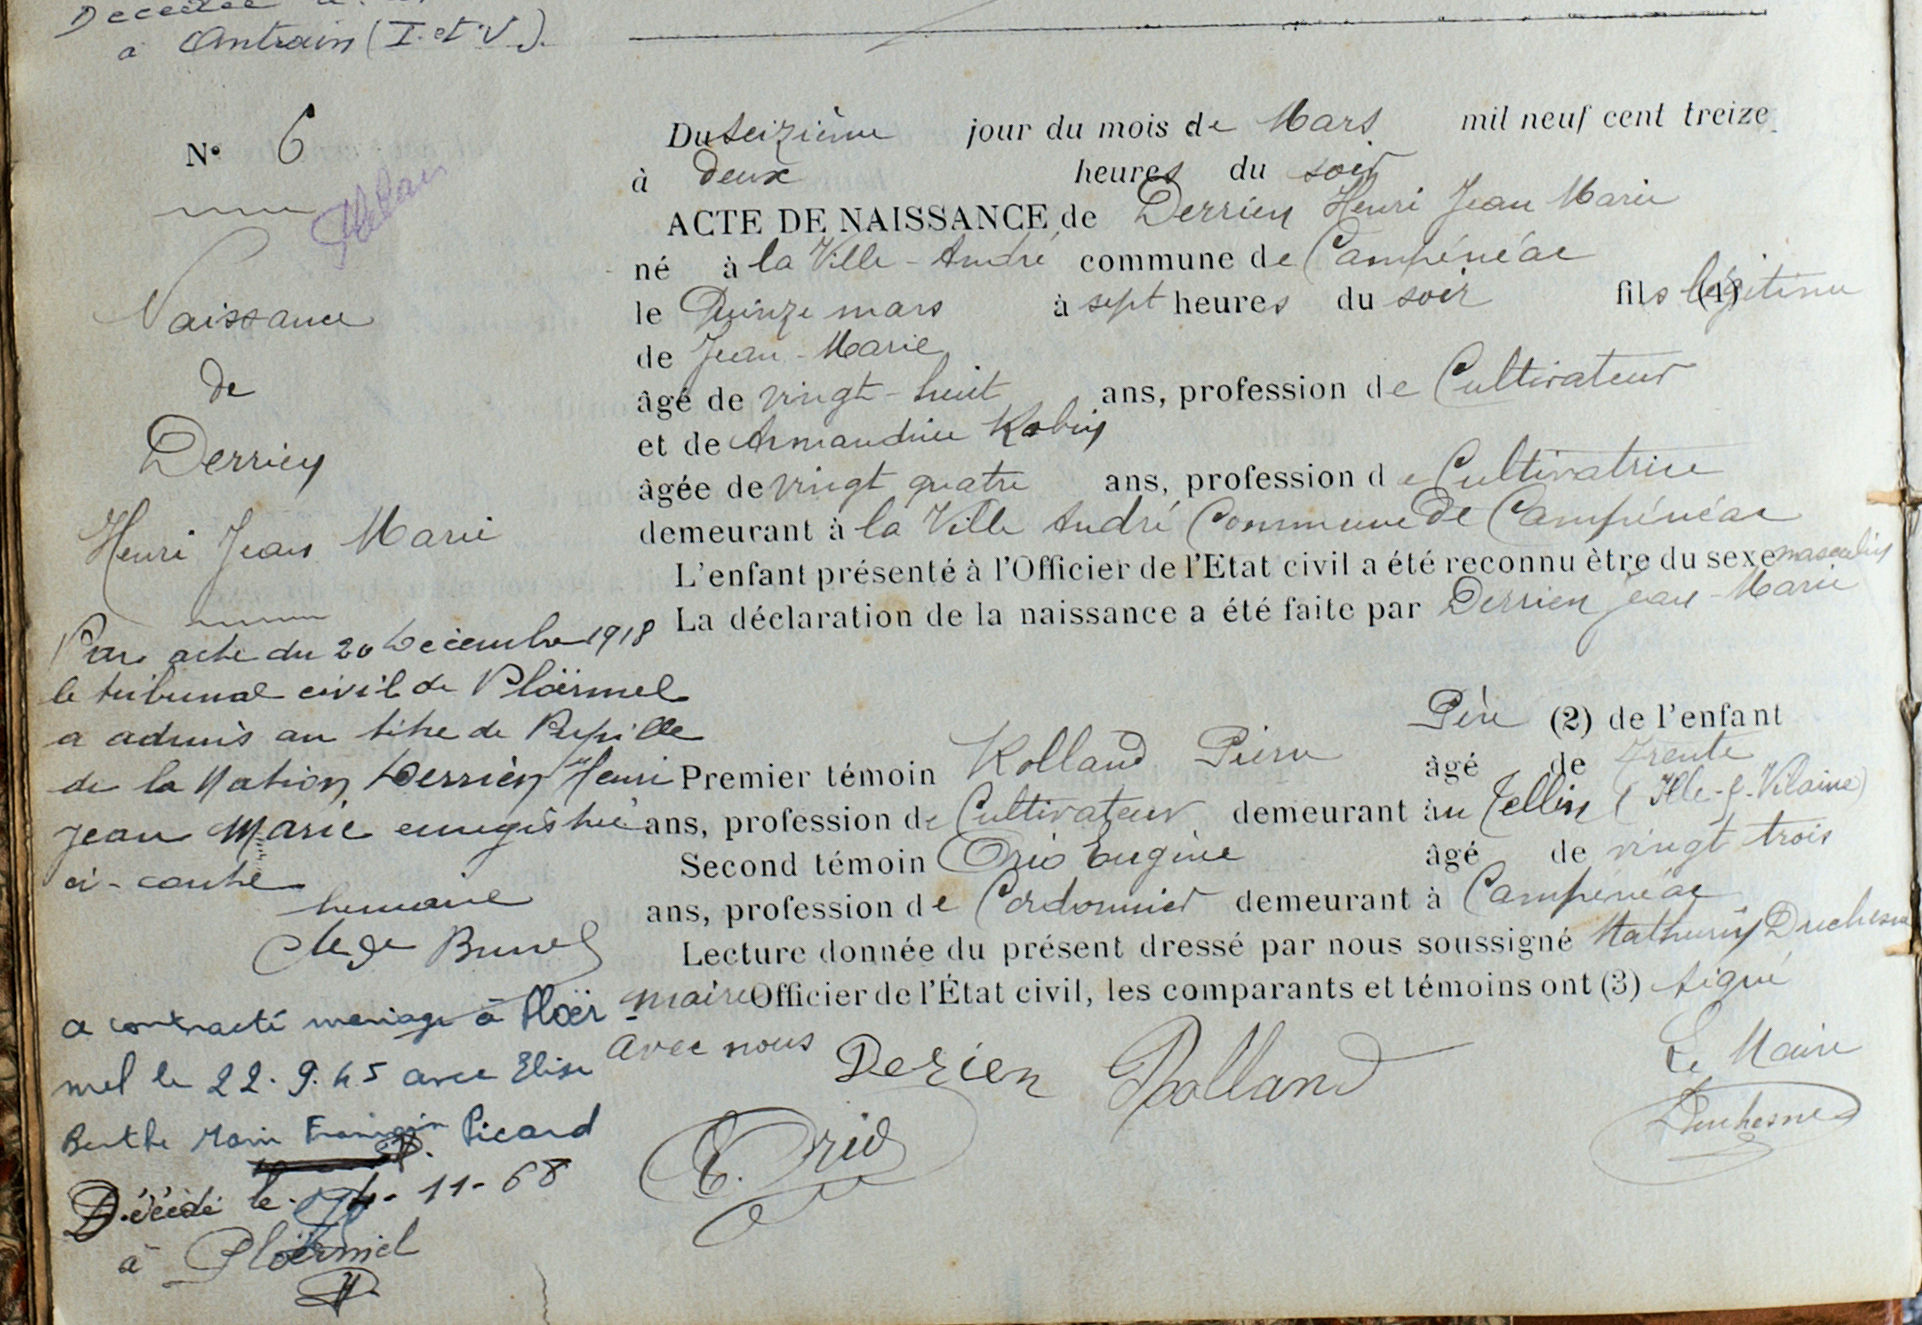 à Antrain (I. et V.).
N° 6
Naissance
de
Derrien
Henri Jean Marie
Par acte du 20 Décembre 1918
le tribunal civil de Ploërmel
a admis au titre de Pupille
de la Nation Derrien Henri
Jean Marie enregistré
ci-contre
Le maire
Brunel
a contracté mariage à Ploër
mel le 22.9.45 avec Elise
Berthe Marie Françoise Picard
Décédé le 4-11-68
à Ploërmel
Du Seizième jour du mois de Mars mil neuf cent treize
à deux heures du soir
ACTE DE NAISSANCE de Derrien Henri Jean Marie
né à la Ville-André commune de Campénéac
le Quinze mars à sept heures du soir fils (1) légitime
de Jean-Marie
âgé de vingt-huit ans, profession de Cultivateur
et de Armandine Robin
âgée de vingt quatre ans, profession de Cultivatrice
demeurant à la Ville André Commune de Campénéac
L'enfant présenté à l'Officier de l'Etat civil a été reconnu ètre du sexe masculin
La déclaration de la naissance a été faite par Derrien Jean-Marie
Père (2) de l'enfant
Premier témoin Rolland Pierre âgé de trente
ans, profession de Cultivateur demeurant à au (Ille-&-Vilaine)
Second témoin Orio Eugène âgé de vingt trois
ans, profession de Cordonnier demeurant à Campénéac
Lecture donnée du présent dressé par nous soussigné Mathurin Duchesne
maire Officier de l'État civil, les comparants et témoins ont (3) signé
avec nous
Derien Rolland Le Maire
E. Orio Duchesne